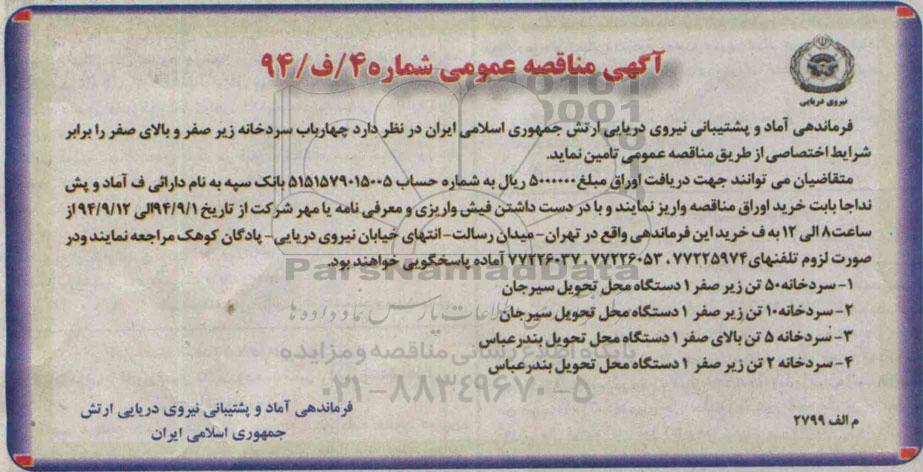 آگهی مناقصه عمومی شماره ۴/ف/۹۴
نیروی دریایی
فرماندهی آماد و پشتیبانی نیروی دریایی ارتش جمهوری اسلامی ایران در نظر دارد چهارباب سردخانه زیر صفر و بالای صفر را برابر
شرایط اختصاصی از طریق مناقصه عمومی تامین نماید.
متقاضیان می توانند جهت دریافت اوراق مبلغ ۵۰۰۰۰۰۰ ریال به شماره حساب ۵۱۵۱۵۷۹۰۱۵۰۰۵ بانک سپه به نام دارائی ف آماد و پش
نداجا بابت خرید اوراق مناقصه واریز نمایند و با در دست داشتن فیش واریزی و معرفی نامه یا مهر شرکت از تاریخ ۹۴/۹/۱ الی ۹۴/۹/۱۲ از
ساعت ۸ الی ۱۲ به ف خرید این فرماندهی واقع در تهران- میدان رسالت- انتهای خیابان نیروی دریایی- پادگان کوهک مراجعه نمایند ودر
صورت لزوم تلفنهای ۷۷۲۲۵۹۷۴ ، ۷۷۲۲۶۰۵۳ ، ۷۷۲۲۶۰۳۷ آماده پاسخگویی خواهند بود.
۱- سردخانه ۵۰ تن زیر صفر ۱ دستگاه محل تحویل سیرجان
۲- سردخانه ۱۰ تن زیر صفر ۱ دستگاه محل تحویل سیرجان
۳- سردخانه ۵ تن بالای صفر ۱ دستگاه محل تحویل بندرعباس
۴- سردخانه ۲ تن زیر صفر ۱ دستگاه محل تحویل بندرعباس
فرماندهی آماد و پشتیبانی نیروی دریایی ارتش
جمهوری اسلامی ایران
م الف ۲۷۹۹
ParsNamadData
پایگاه اطلاع رسانی مناقصه و مزایده
۰۲۱-۸۸۳۴۹۶۷۰-۵